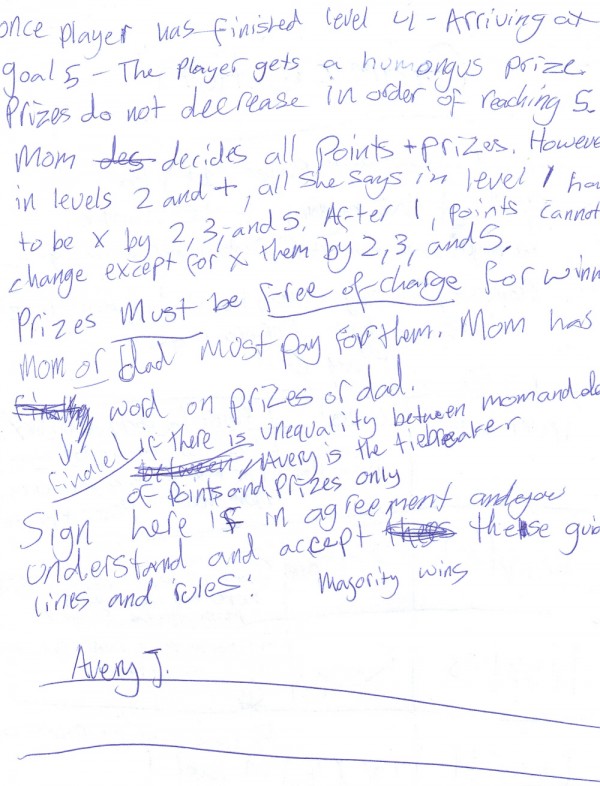 once player has finished level 4 - Arriving at
goal 5 - The player gets a humongus prize.
Prizes do not decrease in order of reaching 5.
Mom des decides all points + prizes. Howeve
in levels 2 and +, all she says in level 1 ha
to be x by 2, 3, and 5. After 1, points cannot
change except for x them by 2, 3, and 5.
Prizes must be free of charge for winn
Mom or dad must pay for them. Mom has
word on prizes or dad.
finale! if there is unequality between mom and da
between Avery is the tiebreaker
of points and prizes only
Sign here if in agreement and you
understand and accept these guid
lines and rules: Majority wins
Avery J.